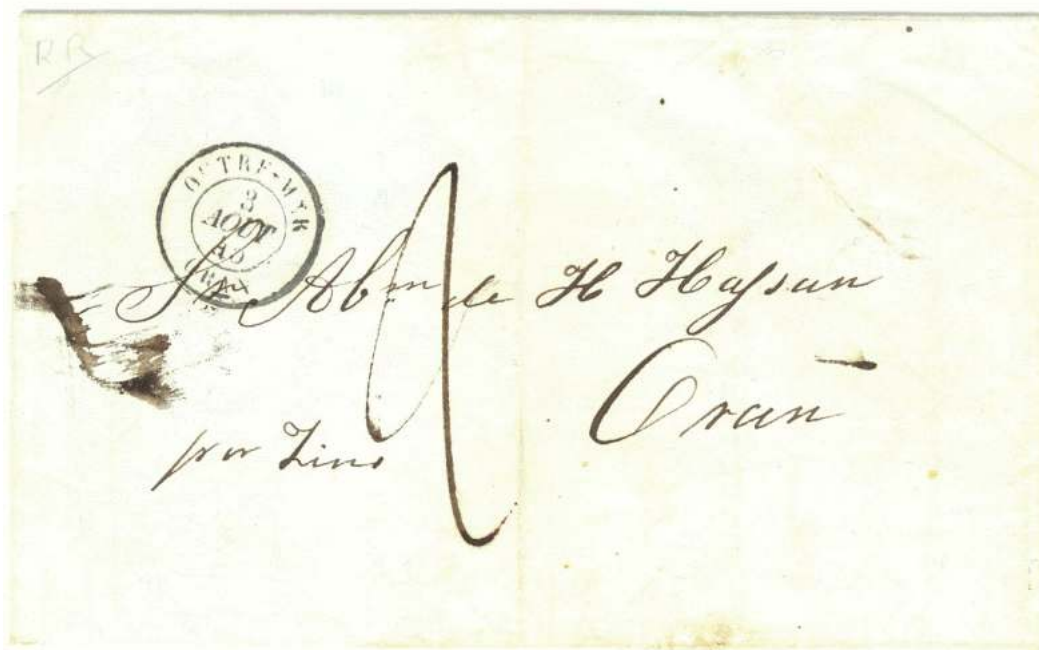 RR
OUTRE-MER
3
AOUT
45
ORAN
Sr Abm de H Hassan
Oran
por Zino